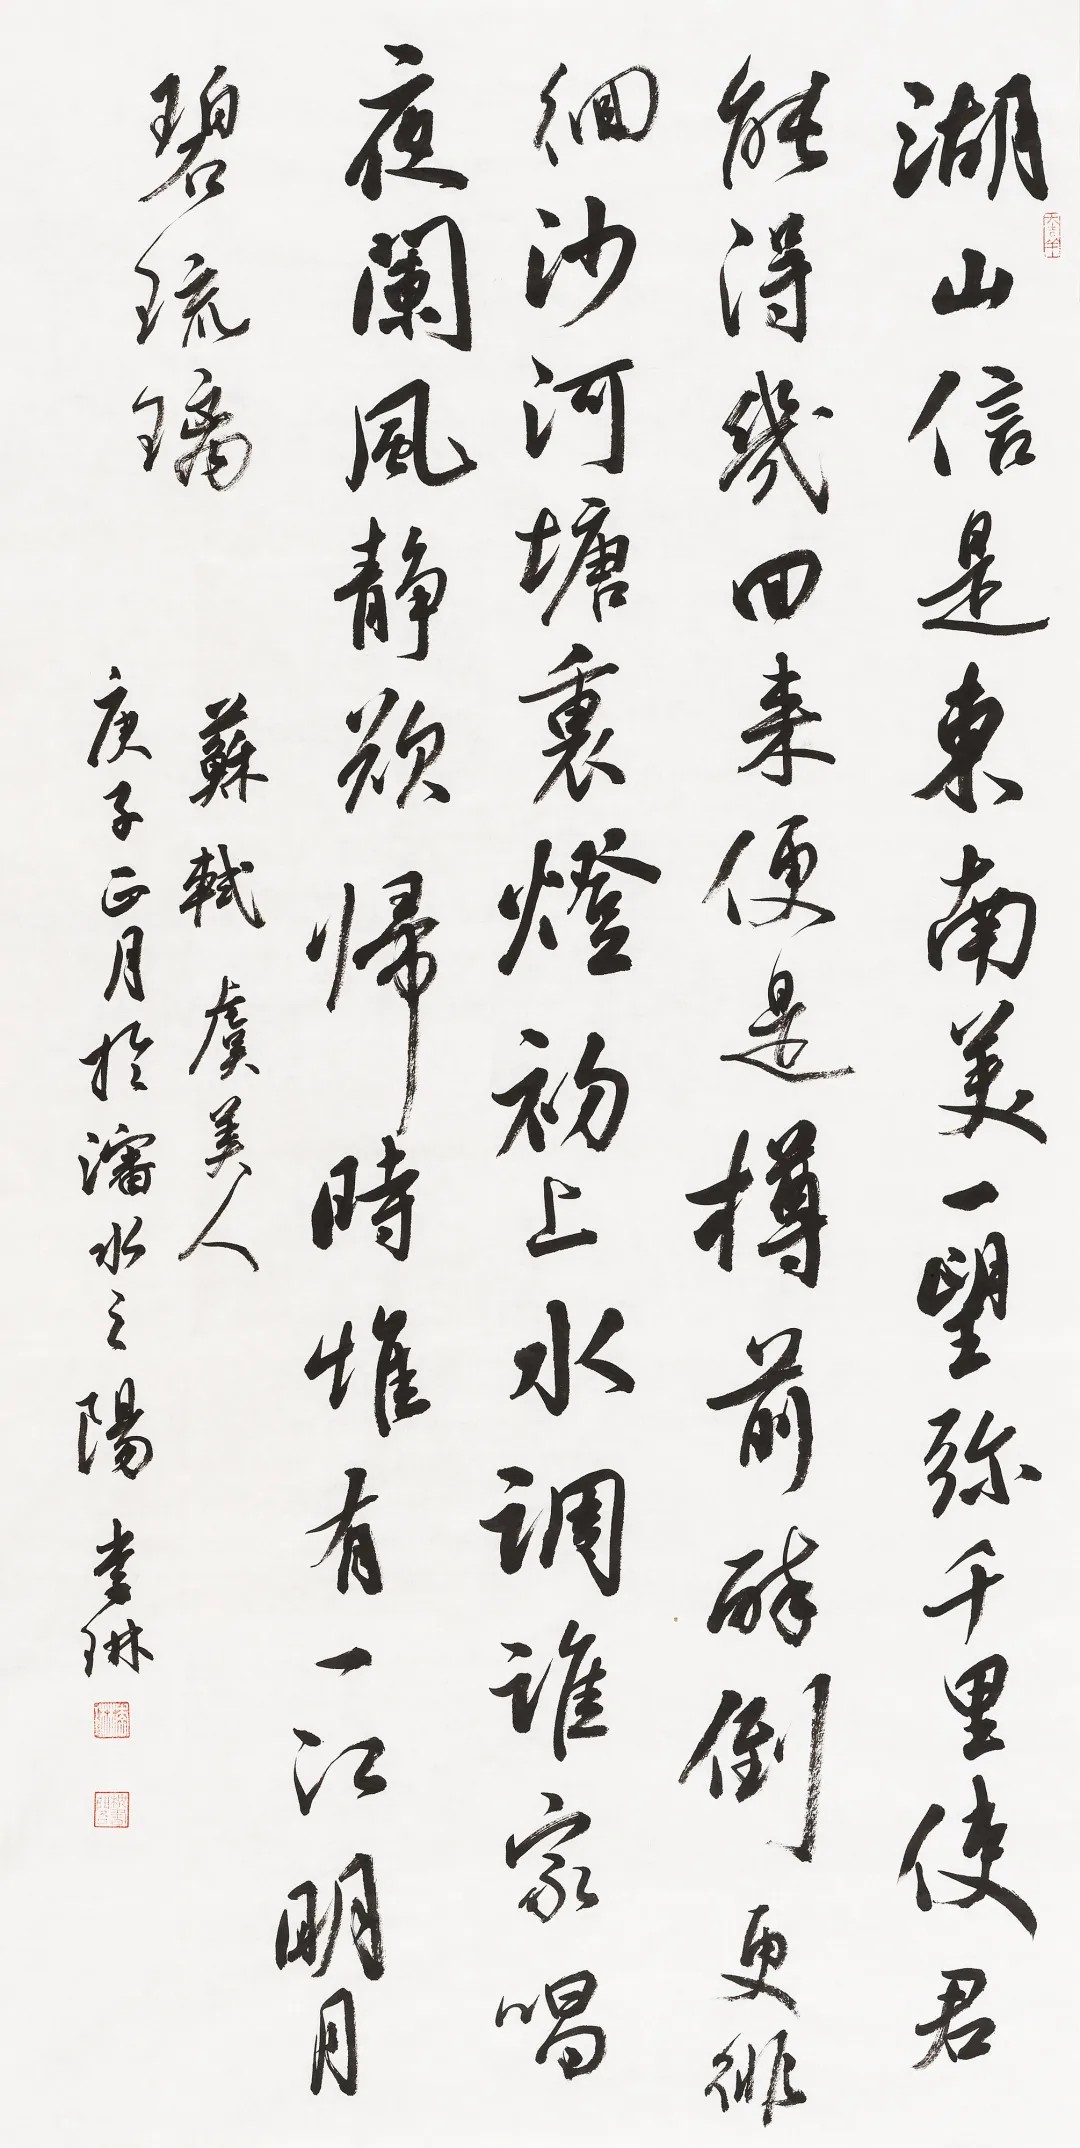 湖山信是東南美一望弥千里使君
能得幾回来便是樽前醉倒更徘
徊沙河塘裏燈初上水調誰家唱
夜闌風靜欲歸時惟有一江明月
碧琉璃
蘇軾 虞美人
庚子正月於瀋水之陽 李琳